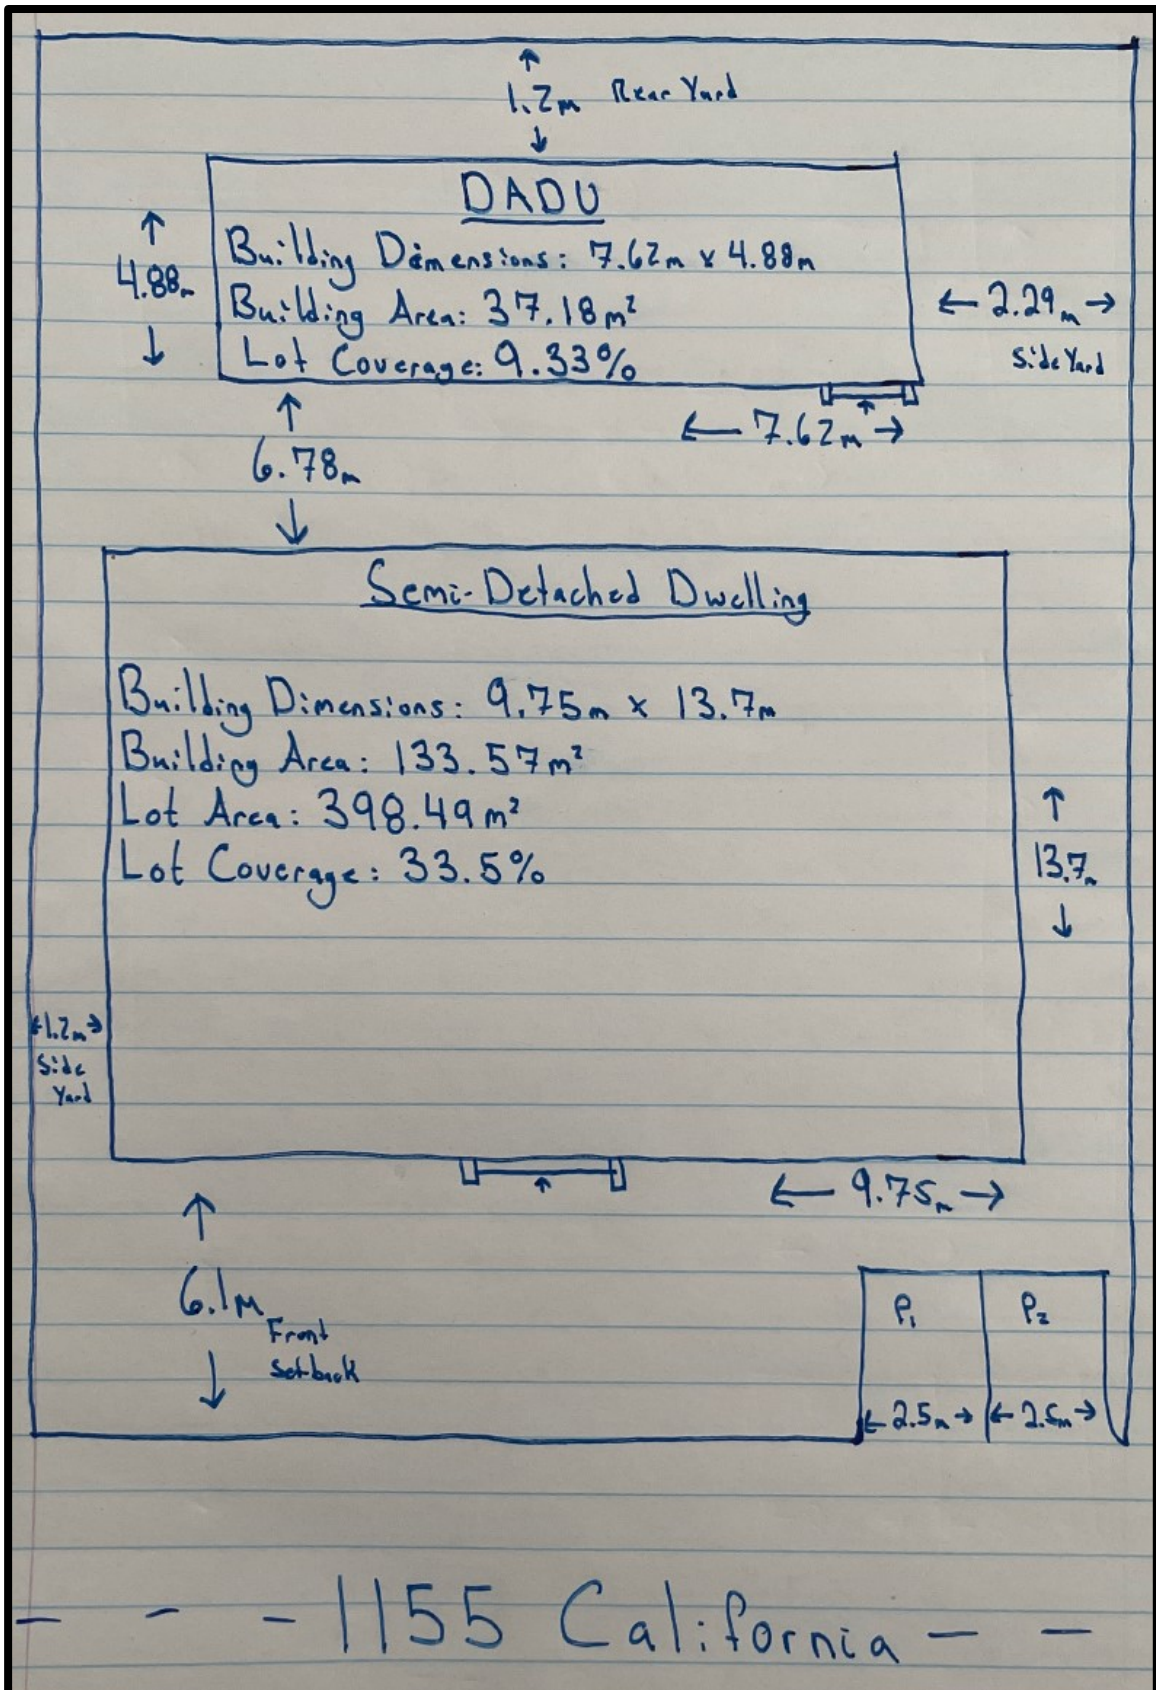 1.2m Rear Yard
DADU
Building Dimensions: 7.62m x 4.88m
4.88m
Building Area: 37.18m²
2.29m
Lot Coverage: 9.33%
Side Yard
7.62m
6.78m
Semi-Detached Dwelling
Building Dimensions: 9.75m x 13.7m
Building Area: 133.57m²
Lot Area: 398.49m²
13.7m
Lot Coverage: 33.5%
1.2m
Side
Yard
9.75m
6.1m
Front
Setback
P₁ P₂
2.5m 2.5m
- - - 1155 California - -